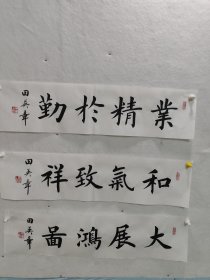 業精於勤
田英章
和氣致祥
田英章
大展鴻圖
田英章